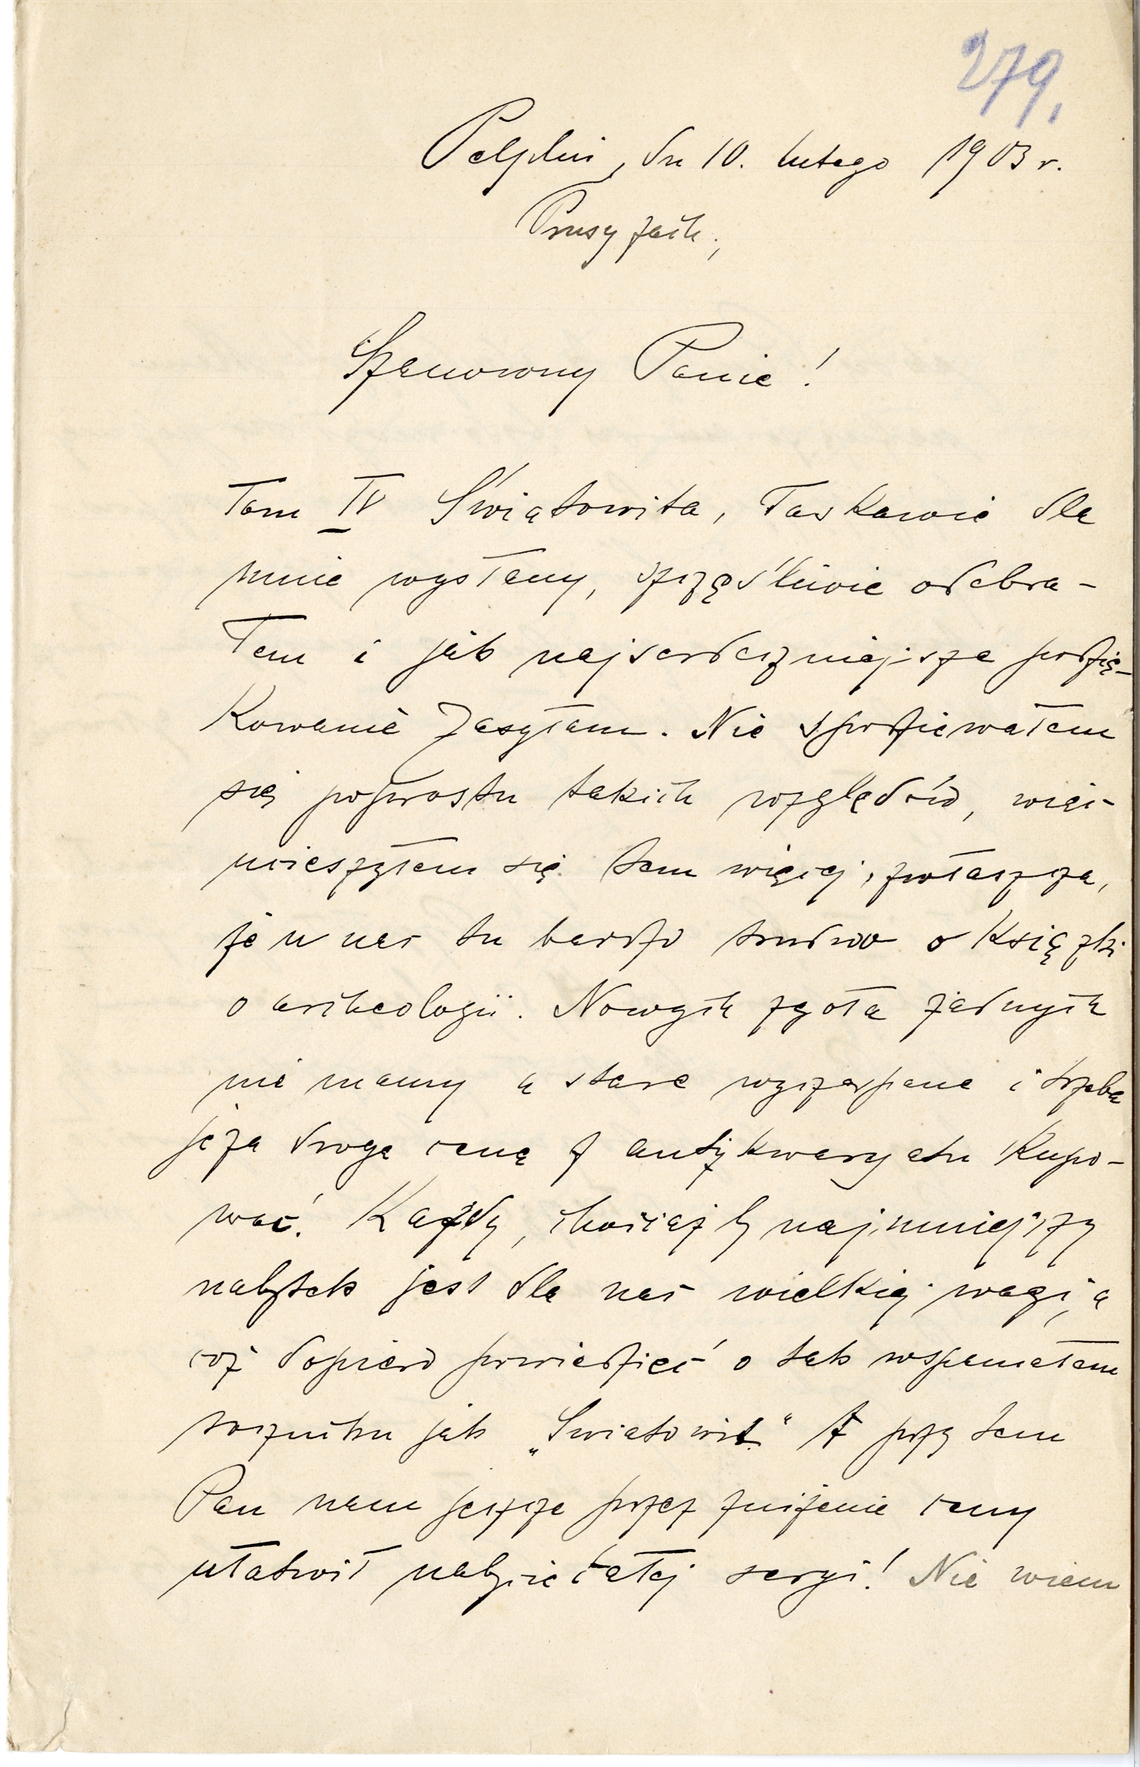 279.
Pelplin, dn 10. lutego 1903 r.
Prusy zach.,
Szanowny Panie!
Tom IV Światowita, łaskawie dla
mnie wysłany, szczęśliwie odebra-
łem i jak najserdeczniejsze podzię-
kowanie zasyłam. Nie spodziewałem
się poprostu takich względów, więc
ucieszyłem się tem więcej, zwłaszcza,
że u nas tu bardzo trudno o książki
o archeologii. Nowych zgoła żadnych
nie mamy a stare wyczerpane i trzeba
je za drogą cenę z antykwaryatu kupo-
wać. Każdy, chociażby najmniejszy
nabytek jest dla nas wielkiej wagi, a
cóż dopiero powiedzieć o tak wspaniałem
roczniku jak „Swiatowit“ A przy tem
Pan nam jeszcze przez zniżenie ceny
ułatwił nabycie całej seryi! Nie wiem